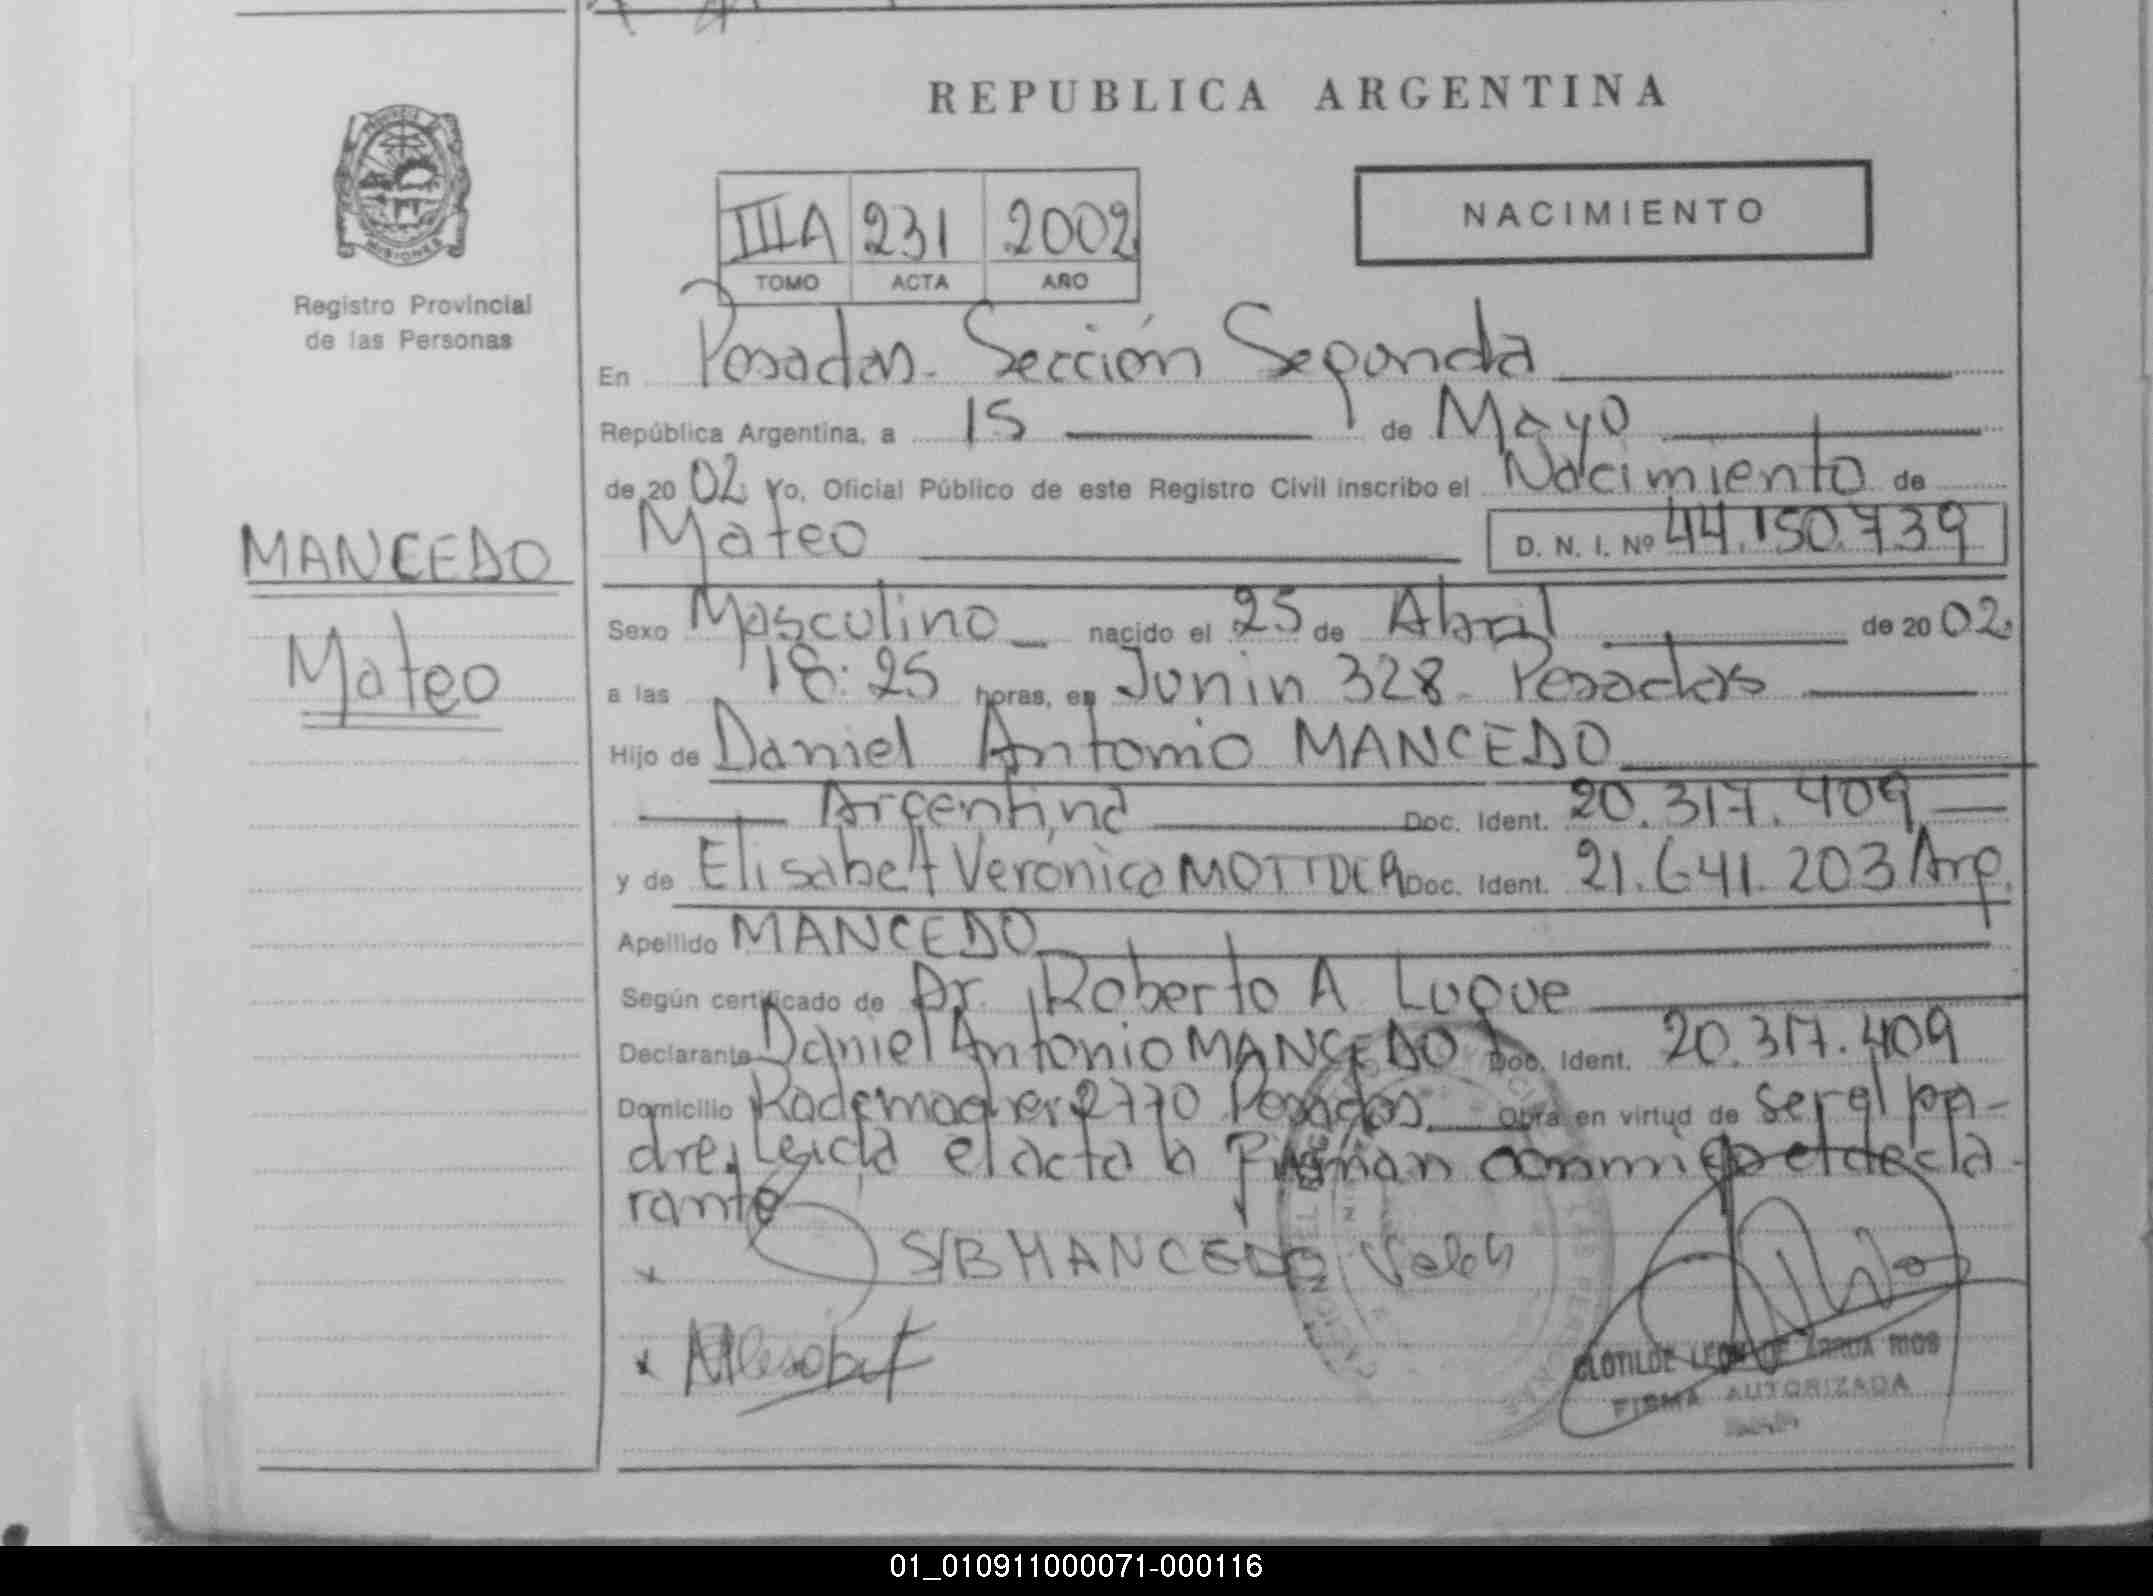 REPUBLICA ARGENTINA
MISIONES
Registro Provincial
de las Personas
IIIA 231 2002
TOMO ACTA AÑO
NACIMIENTO
En Posadas - Sección Segunda
República Argentina, a 15 de Mayo
de 2002 Yo, Oficial Público de este Registro Civil inscribo el Nacimiento de
Mateo D. N. I. Nº 44.150.739
MANCEDO
Mateo
Sexo Masculino nacido el 25 de Abril de 2002
a las 18:25 horas, en Junin 328 - Posadas
Hijo de Daniel Antonio MANCEDO
Argentina Doc. Ident. 20.317.409
y de Elisabet Verónica Doc. Ident. 21.641.203 Arg.
Apellido MANCEDO
Según certificado de Dr. Roberto A Luque
Declarante Daniel Antonio MANCEDO Doc. Ident. 20.317.409
Domicilio Rademacher 2770 Posadas Obra en virtud de ser el pa-
dre. Leida el acta la firman conmigo el decla-
rante
S/B MANCEDO Vale
CLOTILDE DE ARRUA RIOS
FIRMA AUTORIZADA
01_010911000071-000116